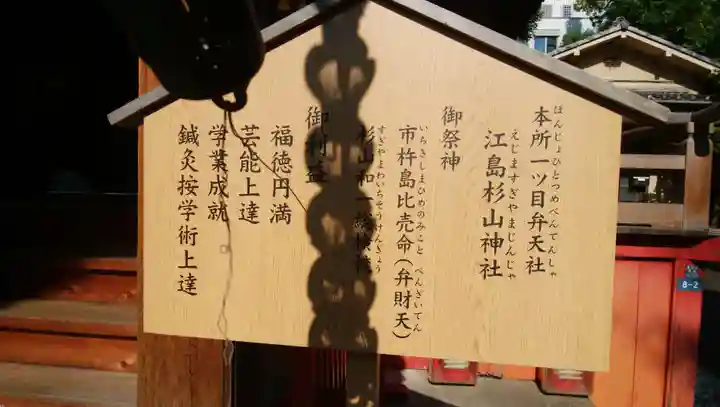 本所一ツ目弁天社
ほんじょひとつめべんてんしゃ
江島杉山神社
えじますぎやまじんじゃ
御祭神
市杵島比売命(弁財天)
いちきしまひめのみこと べんざいてん
杉山和一総検校
すぎやまわいちそうけんぎょう
御利益
福徳円満
芸能上達
学業成就
鍼灸按学術上達
8-2